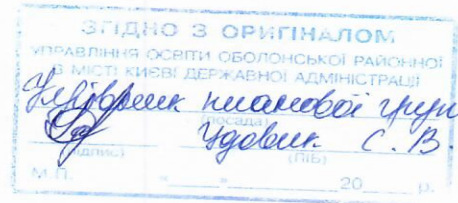 ЗГІДНО З ОРИГІНАЛОМ
УПРАВЛІННЯ ОСВІТИ ОБОЛОНСЬКОЇ РАЙОННОЇ
В МІСТІ КИЄВІ ДЕРЖАВНОЇ АДМІНІСТРАЦІЇ
Керівник планової груп
(посада)
Удовик С. В.
(підпис) (ПІБ)
М.П. "___" ______ 20___ р.